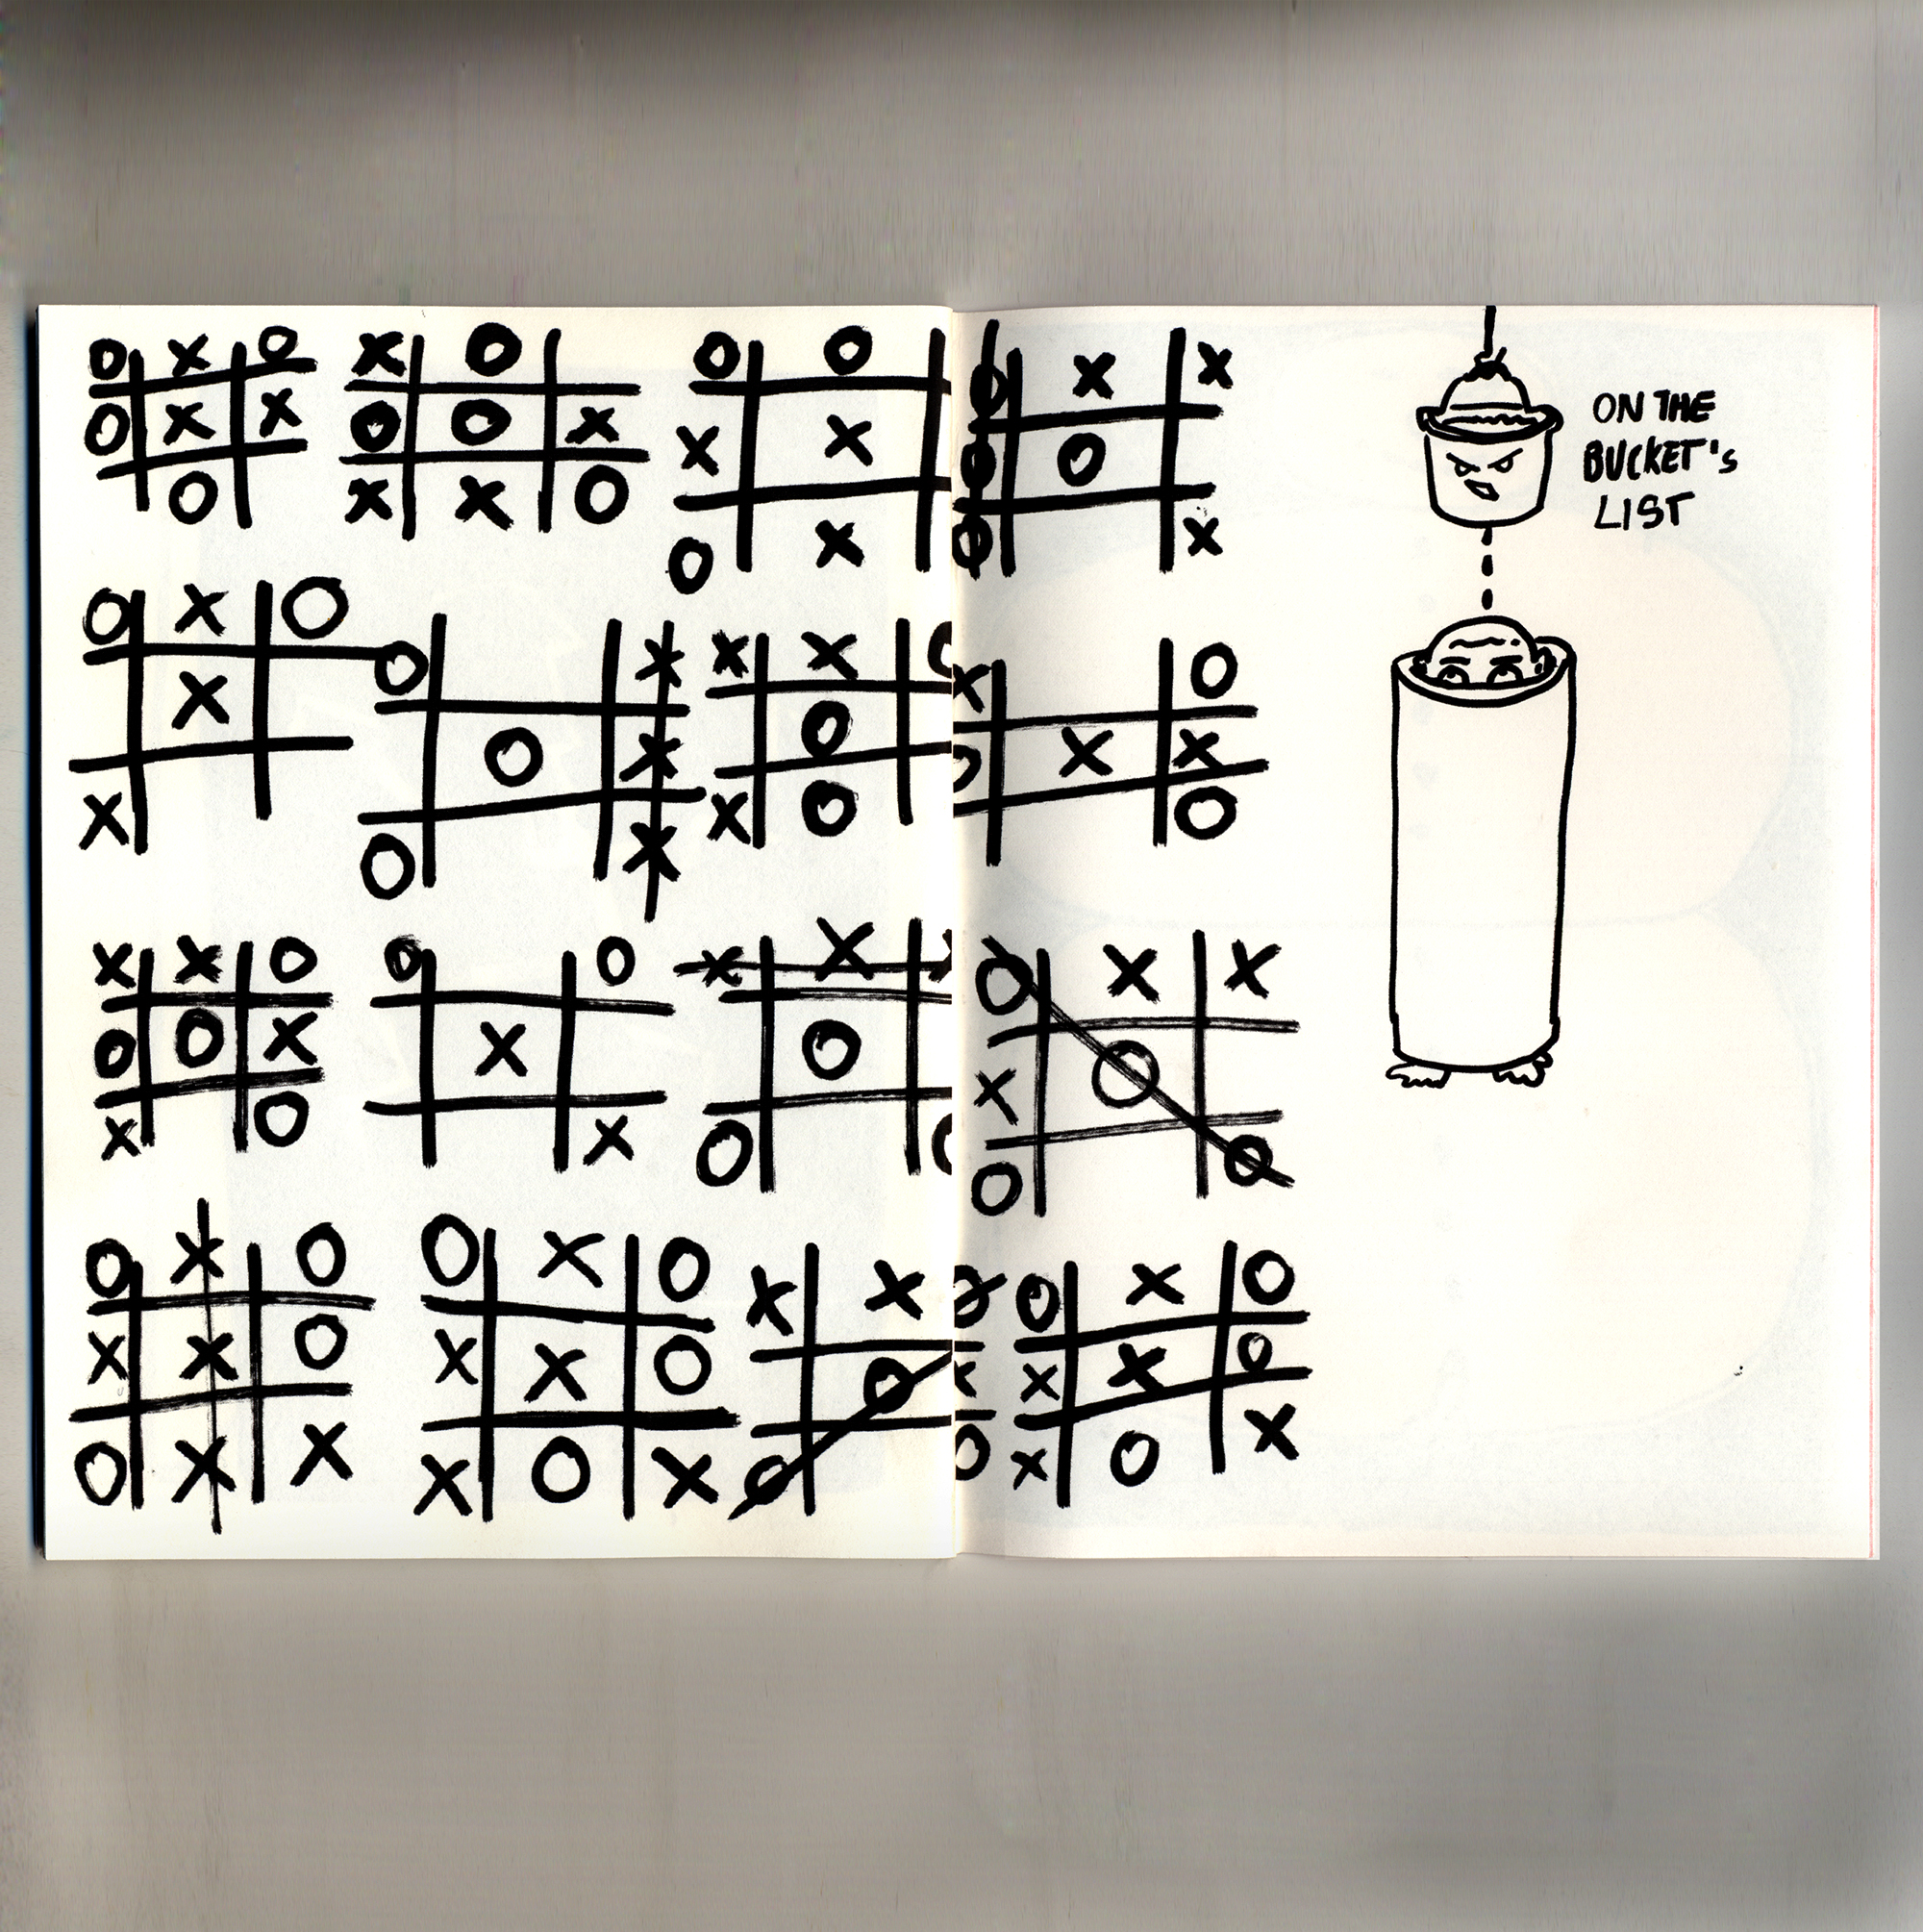 ON THE
BUCKET's
LIST